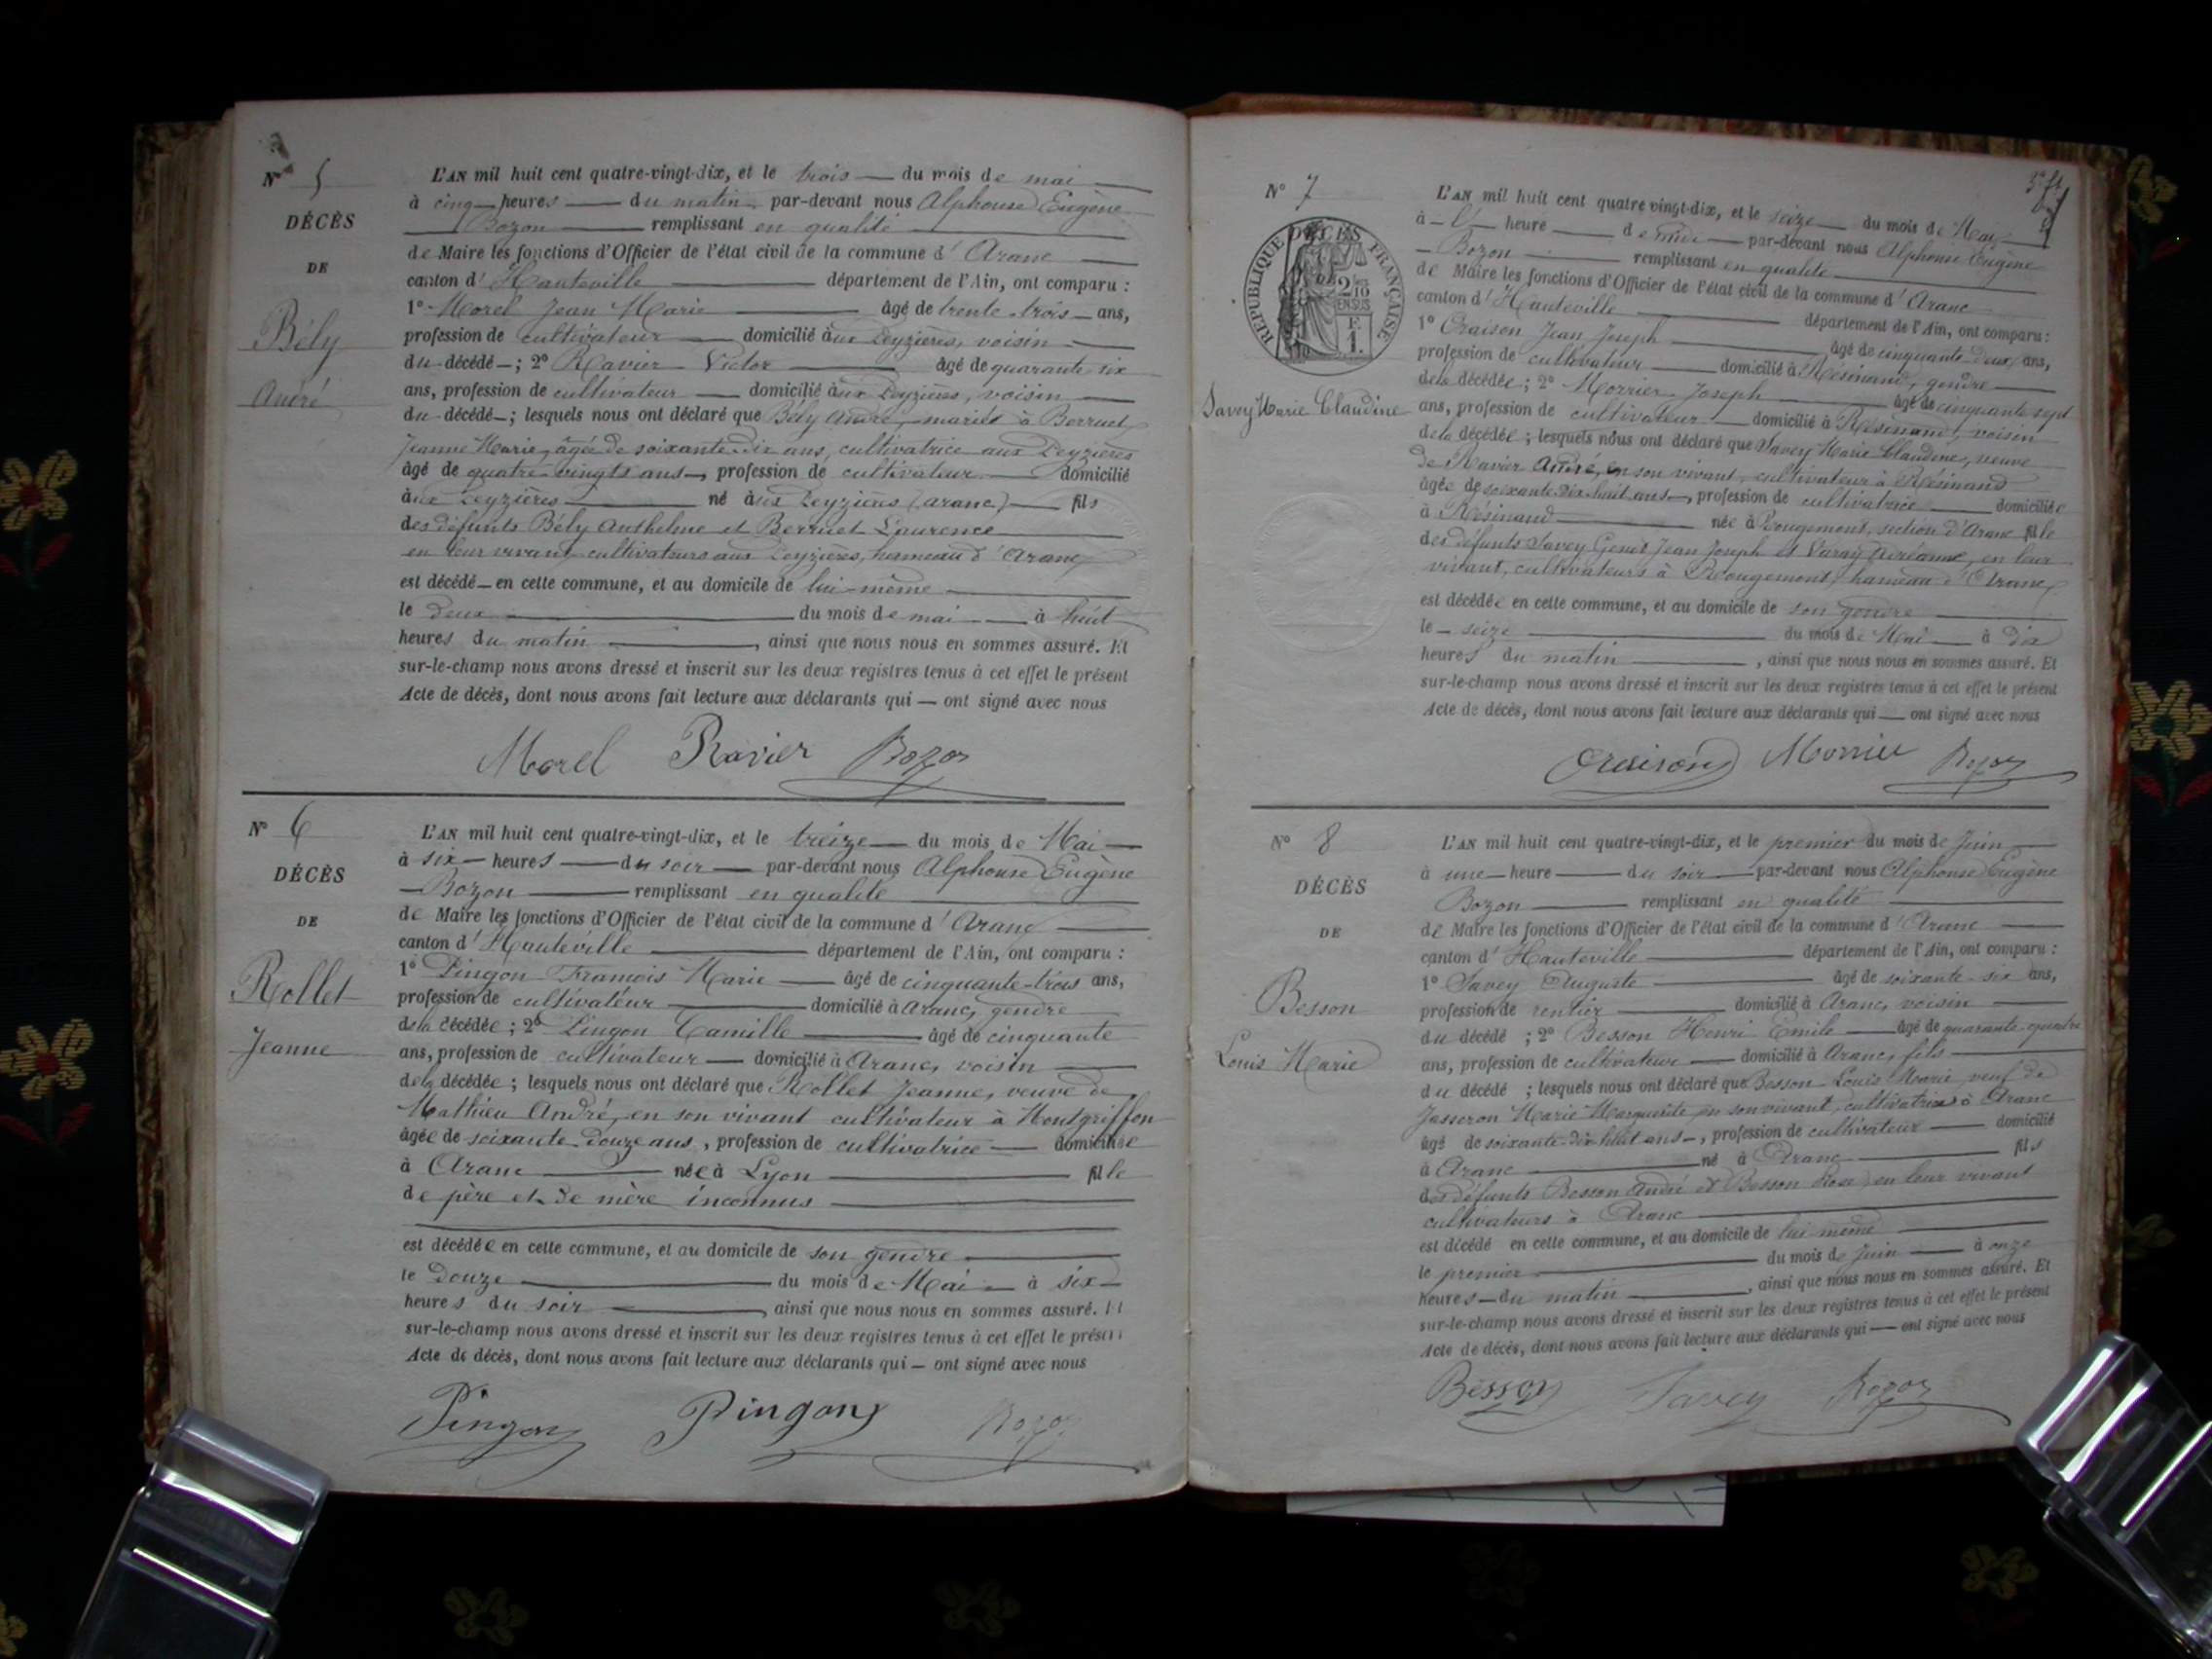 N° 5
DÉCÈS
DE
Bély
André
L'AN mil huit cent quatre-vingt-dix, et le trois du mois de mai
à cinq heures du matin par-devant nous Alphonse Eugène
Bozon remplissant en qualité
de Maire les fonctions d'Officier de l'état civil de la commune d'Aranc
canton d'Hauteville département de l'Ain, ont comparu :
1° Morel Jean Marie âgé de trente-trois ans,
profession de cultivateur domicilié aux Leyzières, voisin
du décédé ; 2° Ravier Victor âgé de quarante-six
ans, profession de cultivateur domicilié aux Leyzières, voisin
du décédé ; lesquels nous ont déclaré que Bély André, marié à Berruet
Jeanne Marie, âgée de soixante-dix ans, cultivatrice aux Leyzières
âgé de quatre-vingts ans, profession de cultivateur domicilié
aux Leyzières né aux Leyzières (Aranc) fils
des défunts Bély Anthelme et Berruet Laurence
en leur vivant cultivateurs aux Leyzières, hameau d'Aranc
est décédé en cette commune, et au domicile de lui-même
le deux du mois de mai à huit
heures du matin, ainsi que nous nous en sommes assuré. Et
sur-le-champ nous avons dressé et inscrit sur les deux registres tenus à cet effet le présent
Acte de décès, dont nous avons fait lecture aux déclarants qui ont signé avec nous
Morel Ravier Bozon
N° 6
DÉCÈS
DE
Rollet
Jeanne
L'AN mil huit cent quatre-vingt-dix, et le treize du mois de Mai
à six heures du soir par-devant nous Alphonse Eugène
Bozon remplissant en qualité
de Maire les fonctions d'Officier de l'état civil de la commune d'Aranc
canton d'Hauteville département de l'Ain, ont comparu :
1° Pingon François Marie âgé de cinquante-trois ans,
profession de cultivateur domicilié à Aranc, gendre
de la décédée ; 2° Pingon Camille âgé de cinquante
ans, profession de cultivateur domicilié à Aranc, voisin
de la décédée ; lesquels nous ont déclaré que Rollet Jeanne, veuve de
Mathieu André, en son vivant cultivateur à Montgriffon
âgée de soixante-douze ans, profession de cultivatrice domiciliée
à Aranc née à Lyon fille
de père et de mère inconnus
est décédée en cette commune, et au domicile de son gendre
le douze du mois de Mai à six
heures du soir, ainsi que nous nous en sommes assuré. Et
sur-le-champ nous avons dressé et inscrit sur les deux registres tenus à cet effet le présent
Acte de décès, dont nous avons fait lecture aux déclarants qui ont signé avec nous
Pingon Pingon Bozon
N° 7
RÉPUBLIQUE FRANÇAISE
2/10
EN SUS
F.
1.
DÉCÈS
Savey Marie Claudine
L'AN mil huit cent quatre-vingt-dix, et le seize du mois de Mai
à heure de midi par-devant nous Alphonse Eugène
Bozon remplissant en qualité
de Maire les fonctions d'Officier de l'état civil de la commune d'Aranc
canton d'Hauteville département de l'Ain, ont comparu :
1° Oraison Jean Joseph âgé de cinquante-deux ans,
profession de cultivateur domicilié à Résinand, gendre
de la décédée ; 2° Morrier Joseph âgé de cinquante-sept
ans, profession de cultivateur domicilié à Résinand, voisin
de la décédée ; lesquels nous ont déclaré que Savey Marie Claudine, veuve
de Ravier André, en son vivant, cultivateur à Résinand
âgée de soixante-dix-huit ans, profession de cultivatrice domiciliée
à Résinand née à Rougemont, section d'Aranc fille
des défunts Savey Genet Jean Joseph et en leur
vivant, cultivateurs à Rougemont, hameau d'Aranc,
est décédée en cette commune, et au domicile de son gendre
le seize du mois de Mai à dix
heures du matin, ainsi que nous nous en sommes assuré. Et
sur-le-champ nous avons dressé et inscrit sur les deux registres tenus à cet effet le présent
Acte de décès, dont nous avons fait lecture aux déclarants qui ont signé avec nous
Oraison Morrier Bozon
N° 8
DÉCÈS
DE
Besson
Louis Marie
L'AN mil huit cent quatre-vingt-dix, et le premier du mois de Juin
à une heure du soir par-devant nous Alphonse Eugène
Bozon remplissant en qualité
de Maire les fonctions d'Officier de l'état civil de la commune d'Aranc
canton d'Hauteville département de l'Ain, ont comparu :
1° Savey Auguste âgé de soixante-six ans,
profession de rentier domicilié à Aranc, voisin
du décédé ; 2° Besson Henri Emile âgé de quarante-quatre
ans, profession de cultivateur domicilié à Aranc, fils
du décédé ; lesquels nous ont déclaré que Besson Louis Marie veuf de
Jasseron Marie Marguerite en son vivant, cultivatrice à Aranc
âgé de soixante-dix-huit ans, profession de cultivateur domicilié
à Aranc né à Aranc fils
des défunts Besson André et Besson Rose en leur vivant
cultivateurs à Aranc
est décédé en cette commune, et au domicile de lui même
le premier du mois de juin à onze
heures du matin, ainsi que nous nous en sommes assuré. Et
sur-le-champ nous avons dressé et inscrit sur les deux registres tenus à cet effet le présent
Acte de décès, dont nous avons fait lecture aux déclarants qui ont signé avec nous
Besson Savey Bozon